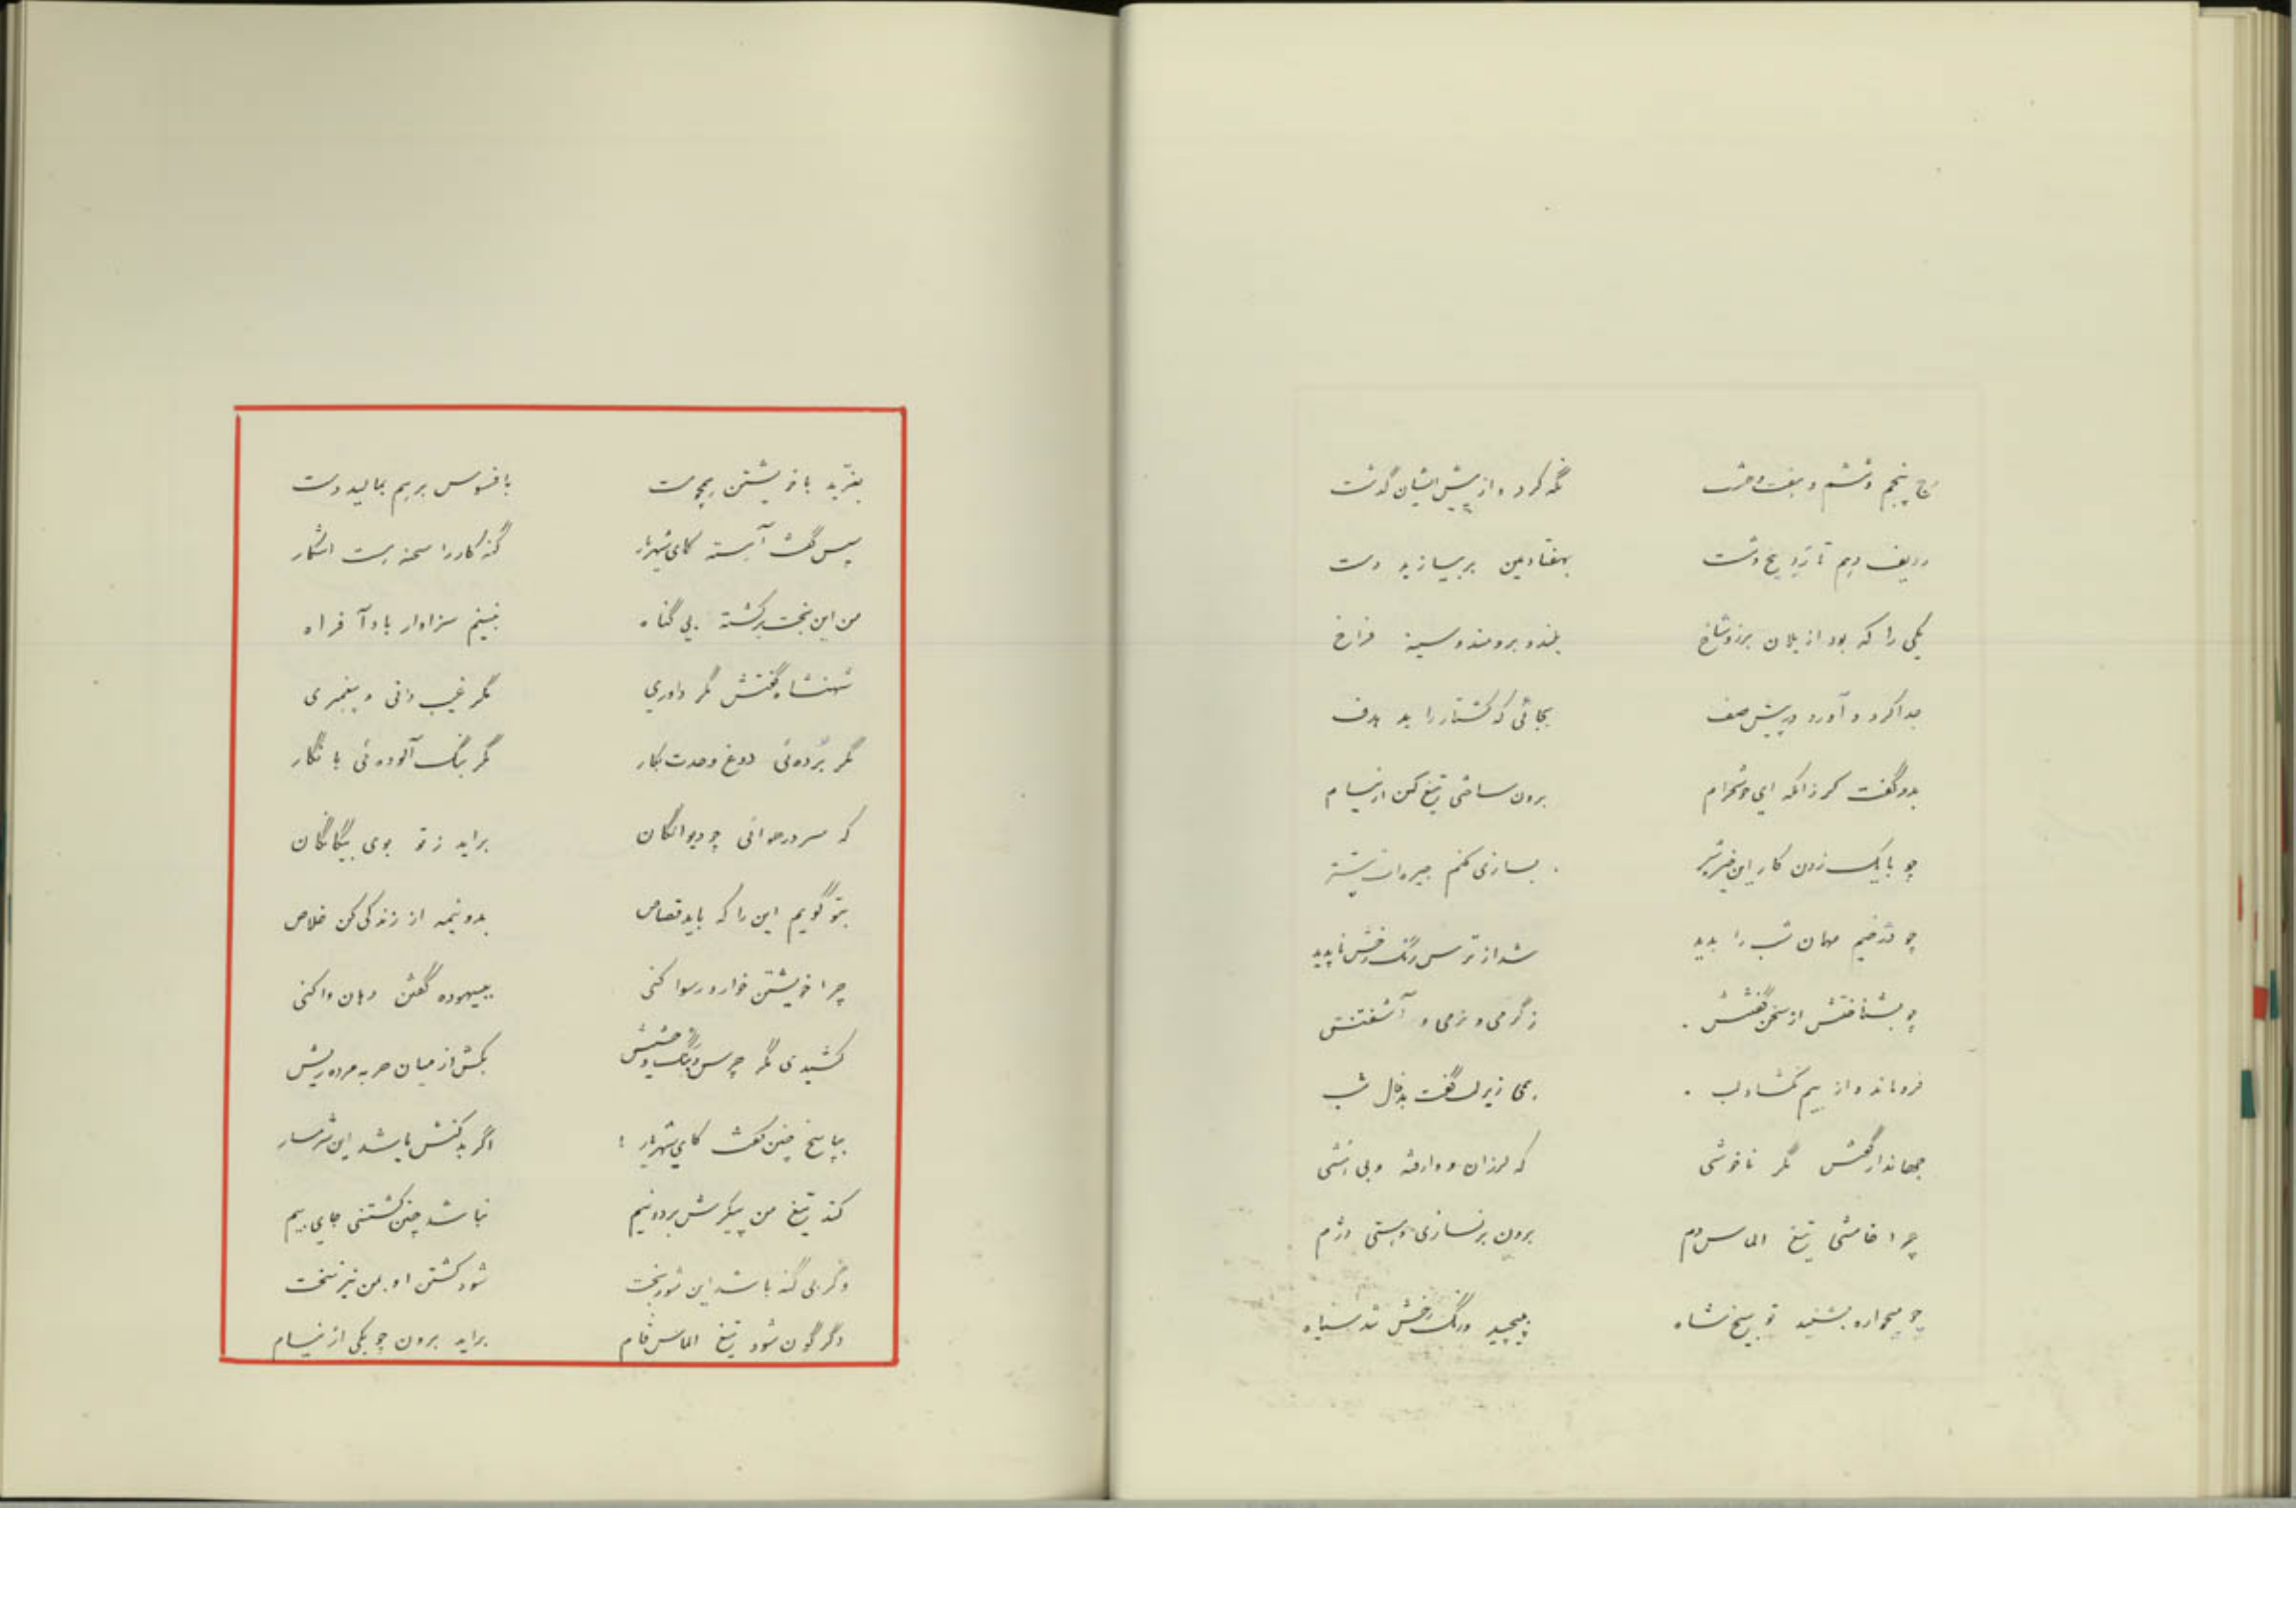 رج پنجم و ششم و هفت و هشت    نگه کرد و از پیش ایشان گذشت
ردیف دهم تا زده پنج و شست    بهفتادمین بر بیازید دست
یکی را که بود از یلان برز و شاخ    بلند و برومند و سینه فراخ
جدا کرد و آورد در پیش صف    بجائی که کشتار را بد هدف
بدو گفت کز زانکه ای خوشخرام    برون ساختی تیغ کین از نیام
چو با یک زدن کار این خیره سر    بسازی کنم جیره ات بیشتر
چو دژخیم مهمان شب را بدید    شد از ترس رنگ رخش ناپدید
چو بشناختش از سخن گفتنش    ز گرمی و نرمی و آشفتنش
فروماند و از بیم نگشاد لب    همی زیر لب گفت بد فال شب
جهاندار گفتش مگر ناخوشی    که لرزان و وارفته و بی هشی
چرا خامشی تیغ الماس دم    برون بر نسازی و هستی دژم
چو میخواره بشنید توبیخ شاه    بپیچید و رنگ رخش شد سیاه
بغرید با خویشتن همچو مست    بافسوس بر هم بمالید دست
سپس گفت آهسته کای شهریار    گنه کار را سحنه هست آشکار
من این بخت برگشته بی گناه    نبینم سزاوار بادآفراه
شهنشاه گفتش مگر داوری    مگر غیب دانی و پیغمبری
مگر برده ئی دوغ وحدت بکار    مگر بنگ آلوده ئی با نگار
که سر در هوائی چو دیوانگان    براید ز تو بوی بیگانگان
بتو گویم این را که باید قصاص    بدو نیمه از زندگی کن خلاص
چرا خویشتن خوار و رسوا کنی    ببیهوده گفتن دهان وا کنی
کشیدی مگر چرس و بنگ و حشیش    بکش از میان حربه مرده ریش
بپاسخ چنین گفت کای شهریار !    اگر بد کنش باشد این شرمسار
کند تیغ من پیکرش بر دو نیم    نباشد چنین کشتنی جای بیم
وگر بی گنه باشد این شوربخت    شود کشتن او بمن نیز سخت
دگرگون شود تیغ الماس فام    براید برون چوبکی از نیام